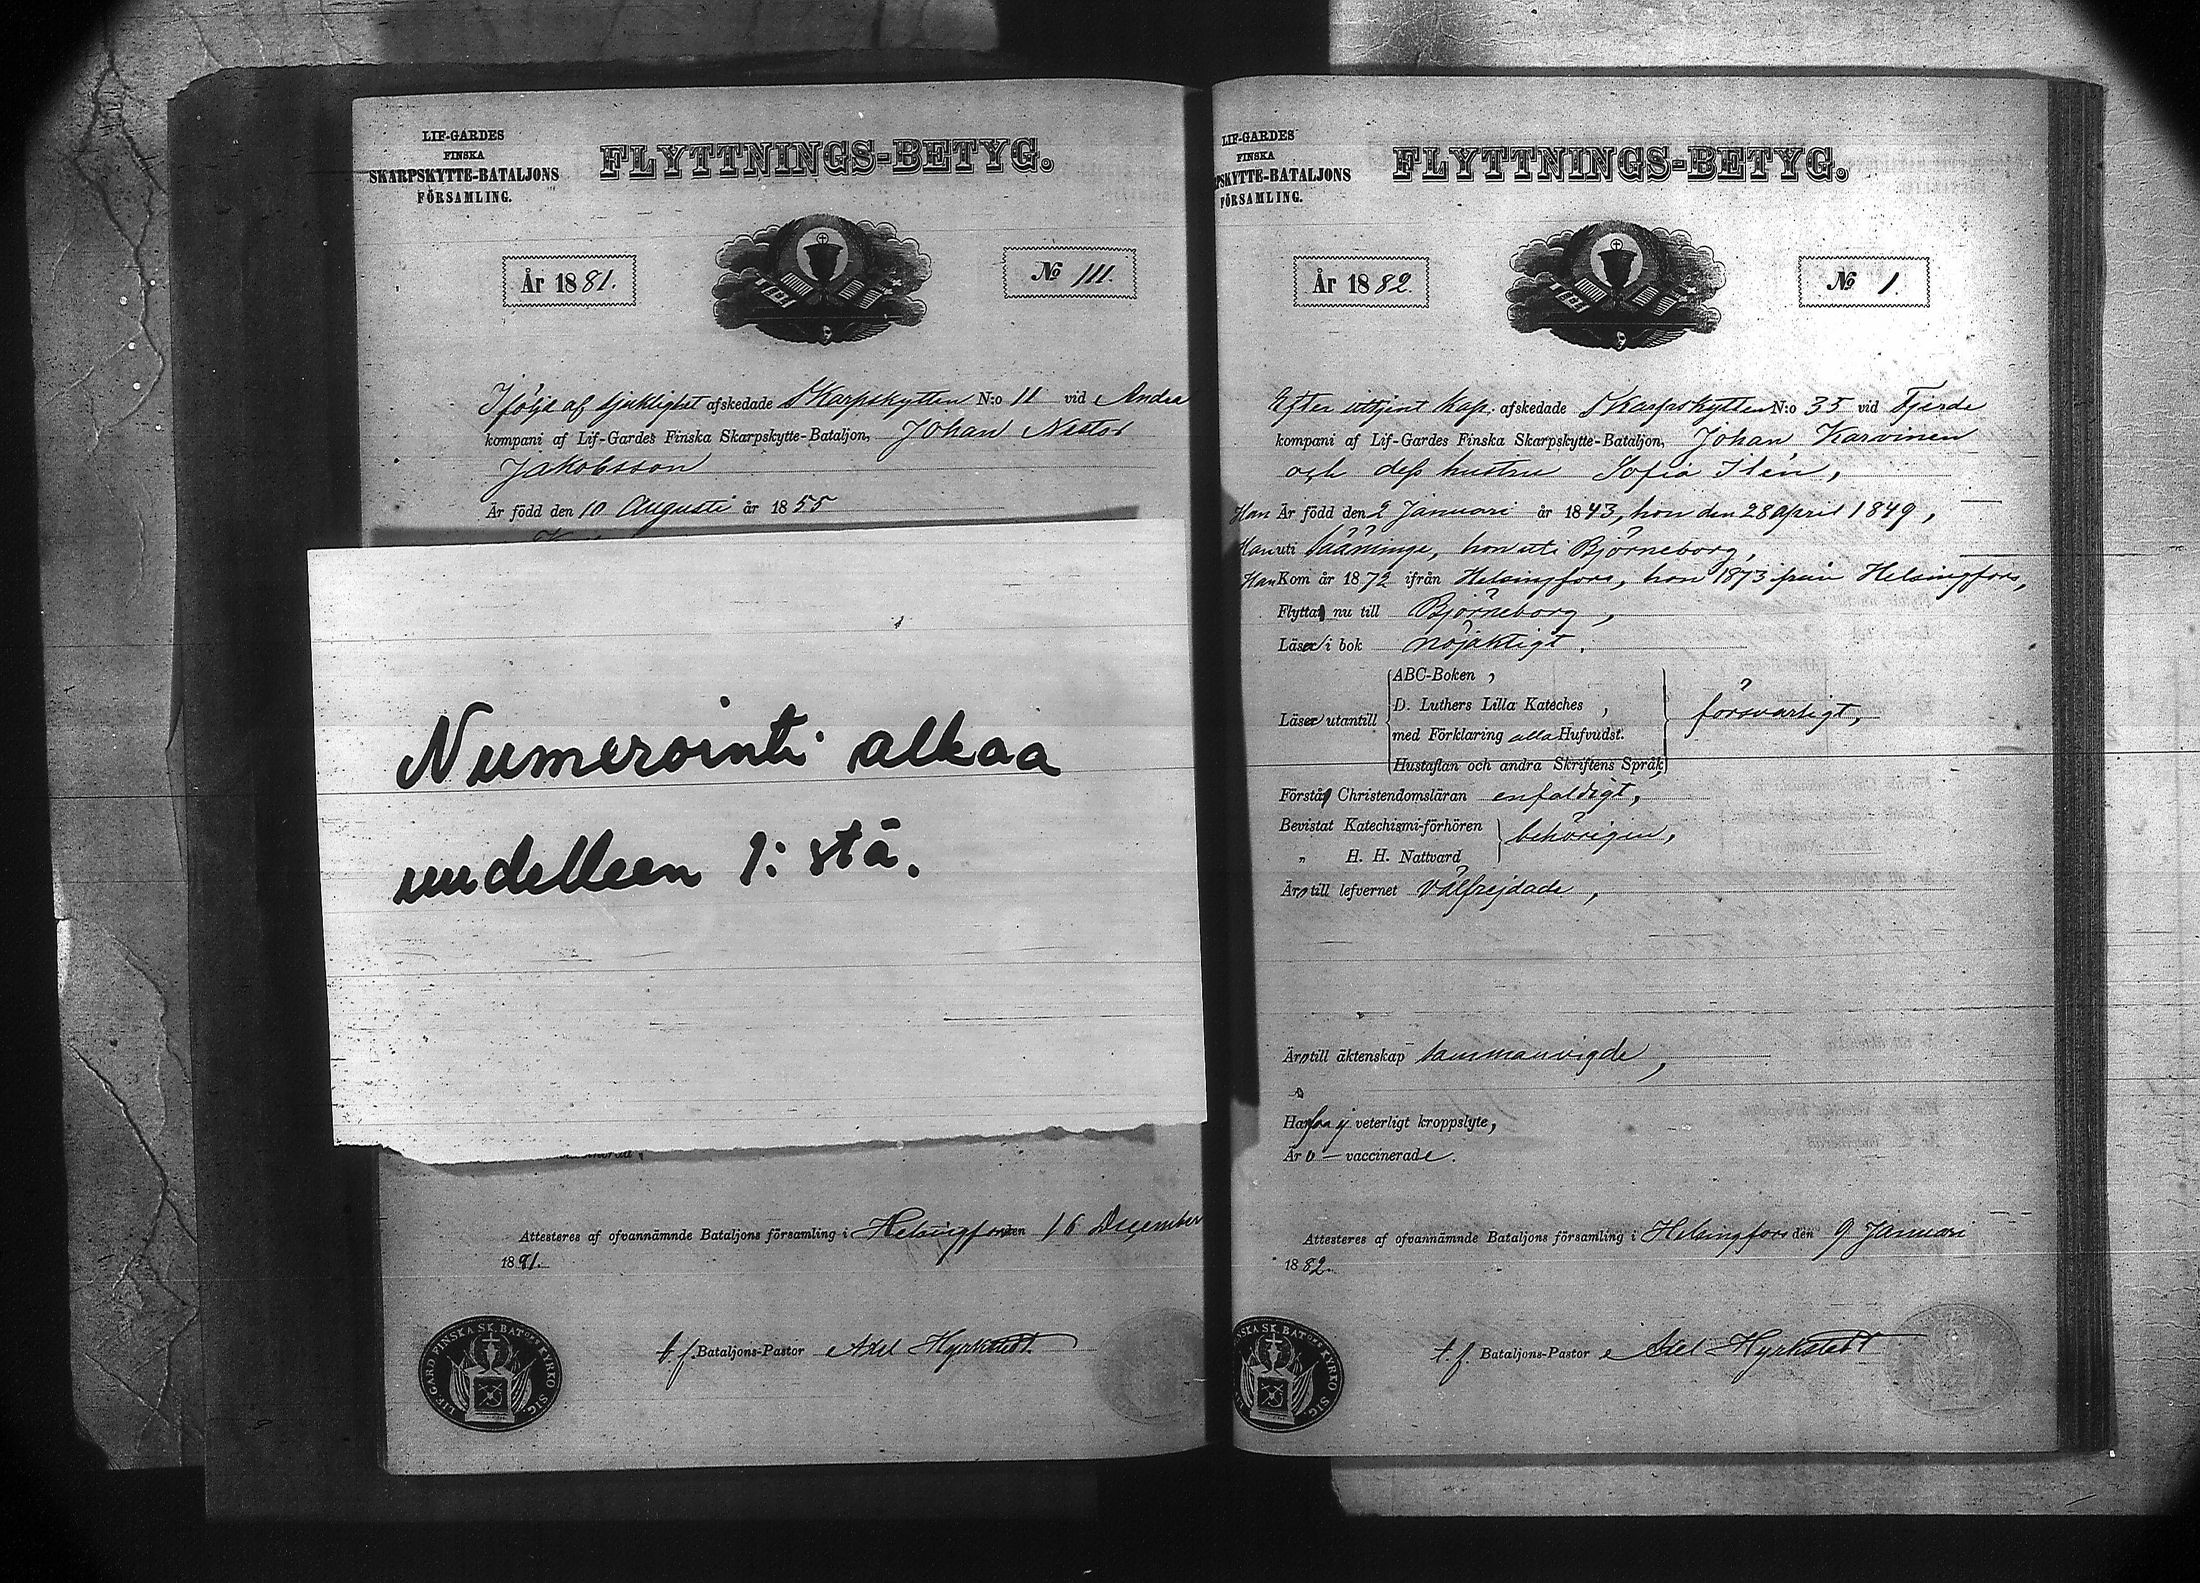 LIF-GARDES
FINSKA
SKARPSKYTTE-BATALJONS
FÖRSAMLING.
FLYTTNINGS-BETYG.
År 1881.
No 111.
I följd af sjuklighet afskedade Skarpskytten N:o 11 vid Andra
kompani af Lif-Gardes Finska Skarpskytte-Bataljon, Johan Nestor
Jakobsson
Är född den 10 Augusti år 1855
Numerointi alkaa
uudelleen 1:stä.
Attesteres af ofvannämnde Bataljons församling i Helsingfors den 16 December
1881.
t.f. Bataljons-Pastor Axel Hyrkstedt
LIF-GARD FINSKA SK. BATONS KYRKO SIG.
LIF-GARDES
FINSKA
PSKYTTE-BATALJONS
FÖRSAMLING.
FLYTTNINGS-BETYG.
År 1882
No 1.
Efter uttjent kap. afskedade Skarpskytten N:o 35 vid Fjerde
kompani af Lif-Gardes Finska Skarpskytte-Bataljon, Johan Karvinen
och dess hustru Sofia Ilén,
Han Är född den 2 Januari år 1843, hon den 28 april 1849,
Han uti Sääminge, hon uti Björneborg,
Han Kom år 1872 ifrån Helsingfors, hon 1873 från Helsingfors,
Flytta nu till Björneborg,
Läsa i bok nöjaktigt.
ABC-Boken,
D. Luthers Lilla Kateches,
Läsa utantill försvarligt,
med Förklaring alla Hufvudst.
Hustaflan och andra Skriftens Språk
Förstå Christendomsläran enfaldigt,
Bevistat Katechismi-förhören behörigen,
" H. H. Nattvard
Äro till lefvernet välfrejdade,
Äro till äktenskap sammanvigde,
Hafva ej veterligt kroppslyte,
Äro vaccinerade.
Attesteres af ofvannämnde Bataljons församling i Helsingfors den 9 Januari
1882.
t.f. Bataljons-Pastor Axel Hyrkstedt
SKA SK. BATONS KYRKO SIG.